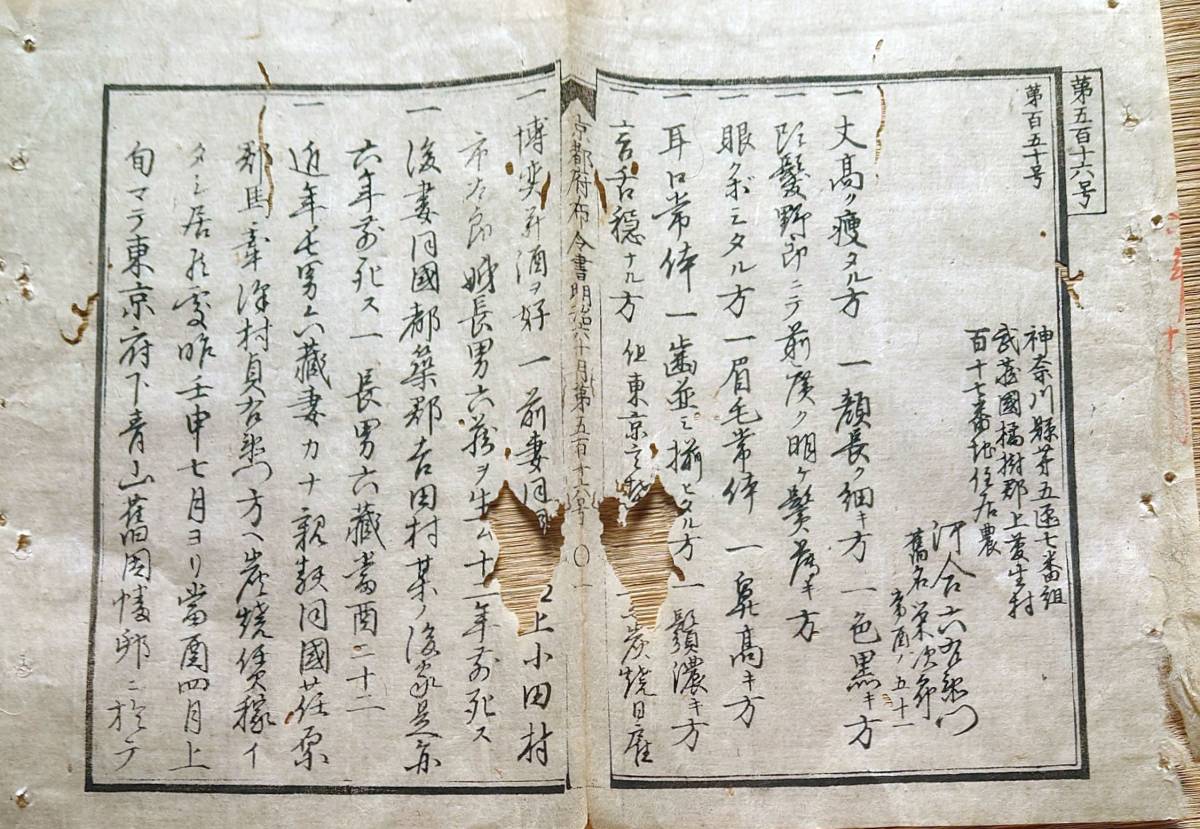 第五百十六号
第百五十号
神奈川縣第五区七番組
武蔵國橘樹郡上菅生村
百十七番地住居農
河合六右衛門
舊名 栄次郎
当酉ノ五十一
一 丈高ク痩タル方 一 顔長ク細キ方 一 色黒キ方
一 頭髪野郎ニテ前廣ク明ケ鬢薄キ方
一 眼クボミタル方 一 眉毛常体 一 鼻高キ方
一 耳口常体 一 歯並ミ揃ヒタル方 一 鬚濃キ方
一 言舌穏ナル方 但東京之 炭焼日雇
京都府布令書明治六十月第五百十六号
一 博奕并酒ヲ好 一 前妻同 上小田村
市太郎娘長男六蔵ヲ生ム十一年前死ス
一 後妻同國都築郡吉田村某ノ後家是亦
六年前死ス 一 長男六藏当酉二十二
一 近年長男六藏妻カナ親類同國荏原
郡馬牽沢村貞右衛門方ヘ炭焼賃稼イ
タシ居候處昨壬申七月ヨリ當酉四月上
旬マテ東京府下青山舊因幡邸ニ於テ